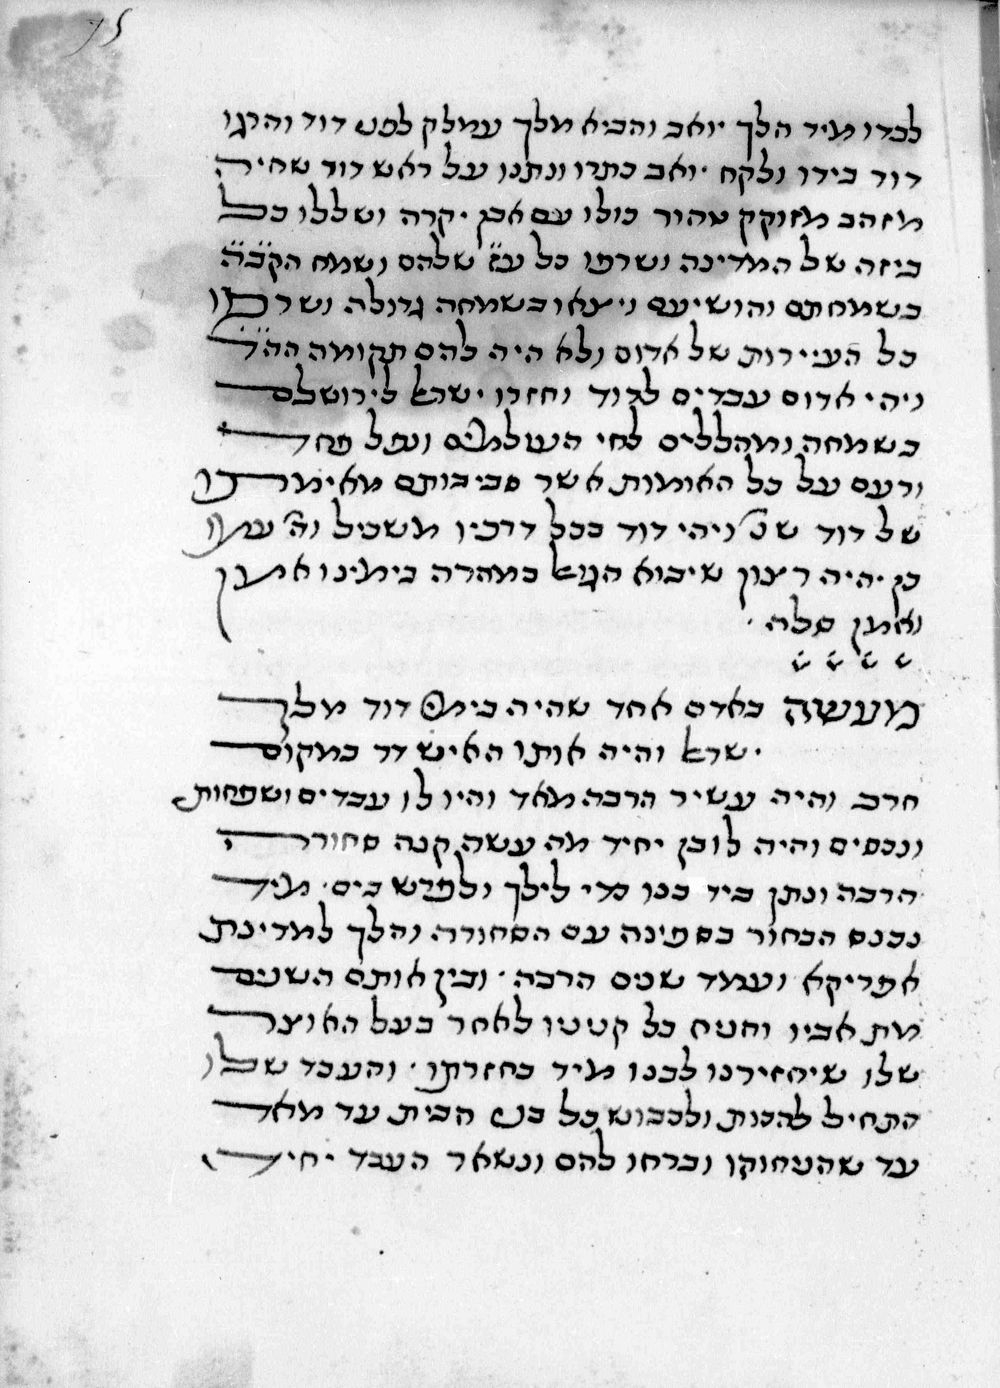 לבדו מיד הלך יואב והביא מלך עמלק לפני דוד והרגו
דוד בידו ולקח יואב כתרו ונתנו על ראש דוד שהיה
מזהב מזוקק טהור כולו עם אבן יקרה ושללו כל
ביזה של המדינה ושרפו כל ע״ז שלהם ושמח הקב״ה
בשמחתם והושיעם ויצאו בשמחה גדולה ושרפו
כל העיירות של אדום ולא היה להם תקומה הה״ד
ויהי אדום עבדים לדוד וחזרו ישראל לירושלם
בשמחה ומהללים לחי העולמים ונפל פחד
ורעם על כל האומות אשר סביבותם מאימתו
של דוד שנ׳ ויהי דוד בכל דרכיו משכיל וה׳ עמו
כן יהיה רצון שיבוא הגואל במהרה בימינו אמן
ואמן סלה
מעשה באדם אחד שהיה בימי דוד מלך
ישראל והיה אותו האיש דר במקום
חרב והיה עשיר הרבה מאד והיו לו עבדים ושפחות
ונכסים והיה לו בן יחיד מה עשה קנה סחורה
הרבה ונתן ביד בנו כדי לילך ולפרש בים מיד
נכנס הבחור בספינה עם הסחורה והלך למדינת
אפריקא ועמד שנים הרבה ובין אותם השנים
מת אביו והניח כל קטטו לאחד בעל האוצר
שלו שיחזירנו לבנו מיד בחזרתו והעבד שלו
התחיל להכות ולכבוש כל בני הבית עד מאד
עד שהניחוקו וברחו להם ונשאר העבד יחיד